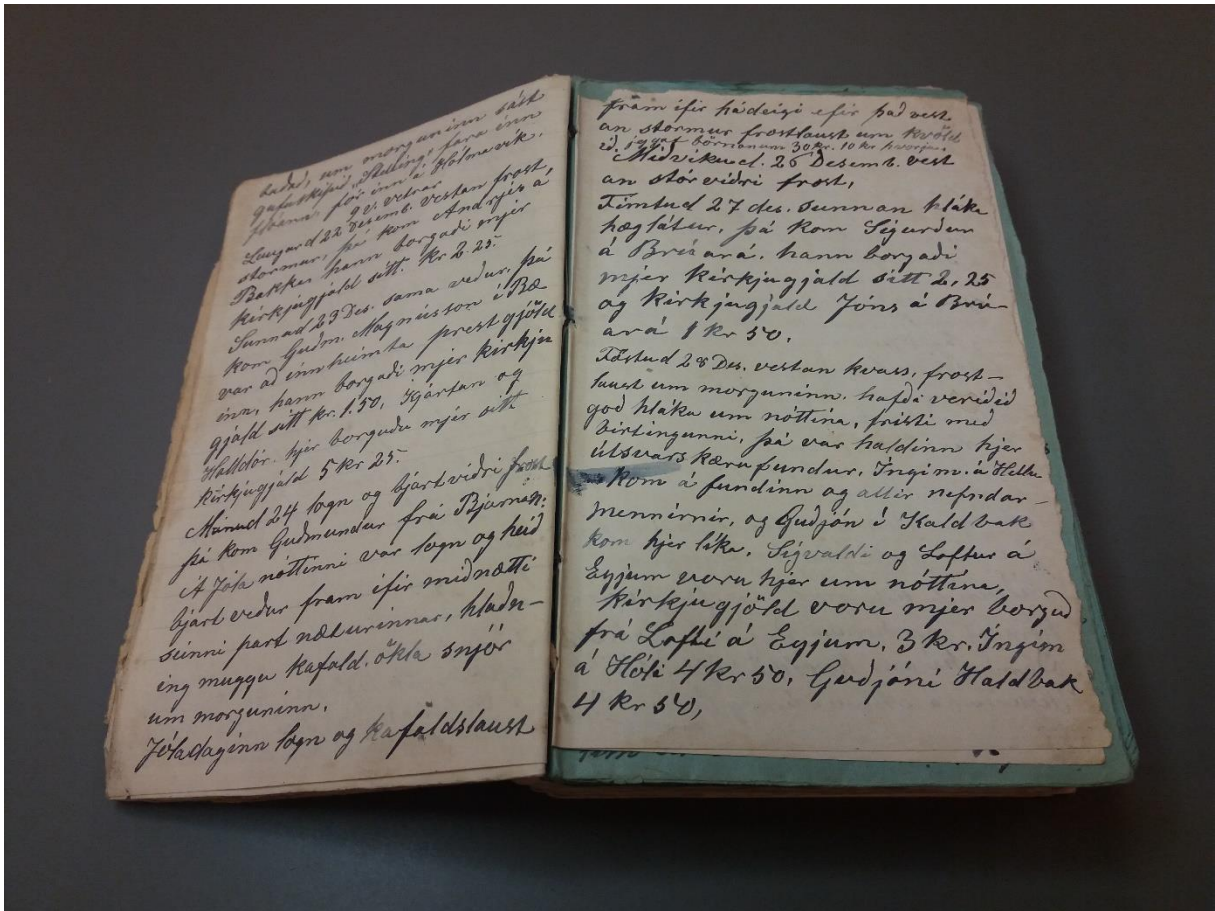 um morguninn sást
gufuskipið „Stelling" fara inn
flóann, fór inn á Hólmavík.
9 v. vetrar
Laugard 22 Desemb. vestan frost,
stormur, þá kom Andrjes á
Bakka hann borgaði mjer
kirkjugjald sitt. kr 2-25.
Sunnud 23 Des. sama veður, þá
kom Guðm. Magnússon í Bæ
var að innheimta prestgjöld
inn, hann borgaði mjer kirkju
gjald sitt kr. 1.50, Kjartan og
Halldór. hjer borguðu mjér sitt
kirkjugjald 5 kr 25.
Mánud 24 logn og bjártviðri frost
þá kom Guðmundur frá Bjarnan:
Á Jóla nóttinni var logn og heið
bjárt veður fram ifir miðnætti
seinni part næturinnar, hlaðn-
ing muggu kafald. ökla snjór
um morguninn.
Jóladaginn logn og kafaldslaust
fram ifir hádeigi efir það vest
an stormur frostlaust um kvöld
ið. jeg gaf börnonum 30 kr. 10 kr hvorju
Miðvikud. 26 Desemb. vest
an stórviðri frost,
Fimtud 27 des. sunnan hláka
hæglátur. þá kom Sigurður
á Brúará. hann borgaði
mjer kirkjugjald sitt 2,25
og kirkjugjald Jóns á Brú-
ará 1 kr 50.
Föstud 28 Des. vestan kvass, frost-
laust um morguninn. hafði veriðið
góð hláka um nóttina, fristi með
birtingunni, þá var haldinn hjer
útsvars kærufundur. Ingim. á Hellu
kom á fundinn og allir nefndar-
mennirnir, og Guðjón í Kaldbak
kom hjer líka. Sigvaldi og Loftur á
Eyjum voru hjer um nóttina,
Kirkjugjöld voru mjer borguð
frá Lofti á Eyjum. 3 kr. Ingim
á Hóli 4 kr 50, Guðjóni Kaldbak
4 kr 50,